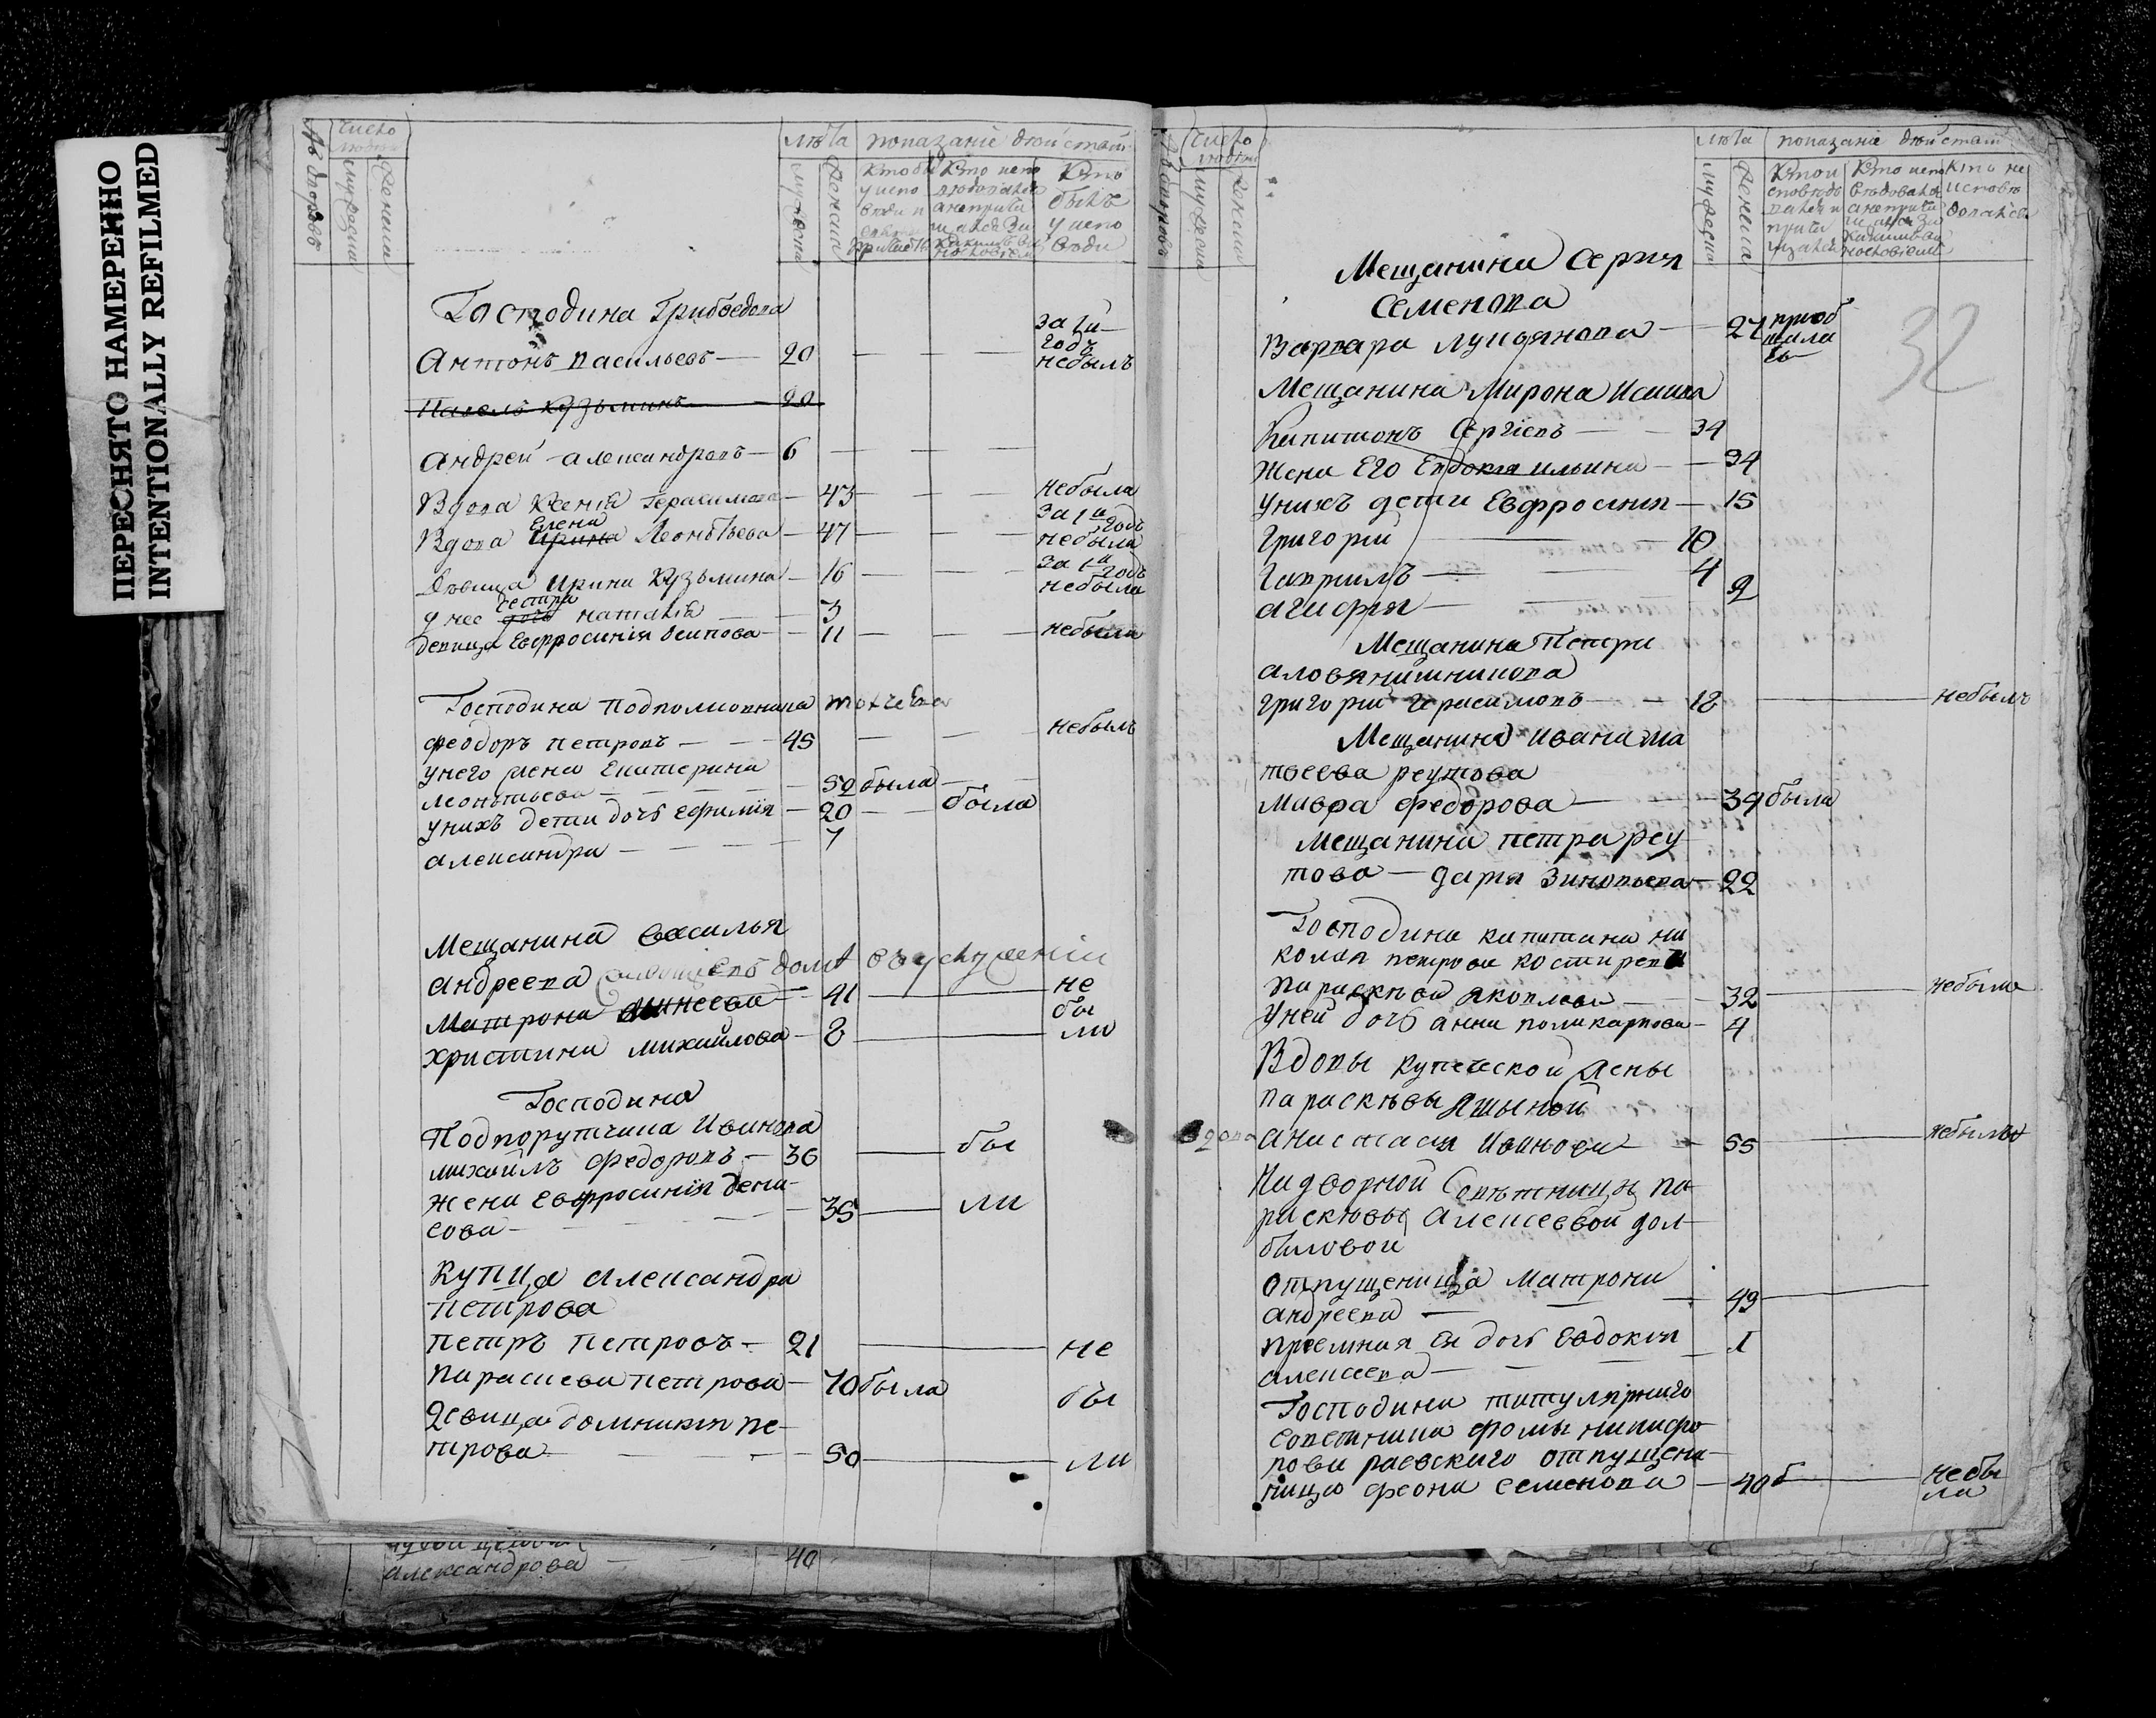 ПЕРЕСНЯТО НАМЕРЕННО
INTENTIONALLY REFILMED
число
людей
лѣта показаніе дѣйстви
Кто
былъ
у испо
веди
Господина Грибоедова
за 1й
годъ
Антонъ васильевъ — 20 — — — небылъ
Павелъ Кузьминъ — 20
Андрей александровъ — 6 — — —
Вдова Ксенія Герасимова — 43 — — — небыла
Елена за 1й годъ
Вдова Ирина Леонтьева — 47 — — — небыла
за 1й годъ
Девица ирина Кузьмина — 16 — — — небыла
сестра
у нее дочь наталія — 3
девица Евфросинія Осипова — 11 — — — небыла
Господина Подполковника
феодоръ петровъ — — 45 — — небылъ
у него жена Екатерина
леонтьева — — — 52 была — —
у нихъ дети дочь ефимія — 20 — была
александра — — — — 7
Мещанина василья
андреева
Матрона минеева — 41 — не
бы
христина михайлова — 8 — ли
Господина
Подпорутчика Иванова
михайлъ федоровъ — 36 — бы
жена Евфросинія дени
сова — — — 35 — ли
купца александра
петрова
петръ петровъ — 21 — не
параскева петрова — 70 была бы
Девица домникія пе
трова — — — 50 — ли
александрова — — 40
число
людей
лѣта показаніе дѣйстви
32
Мещанина Сергія
Семенова
приоб
Варвара лукьянова — 27 щила
сь
Мещанина Мирона Исаива
Капитонъ Сергіевъ — — 34
жена Его Евдокія ильина — — 34
у нихъ дети Евфросинія — 15
григорій — 10
гаврилъ — — 4
агафія — — 2
Мещанина Петра
григорій герасимовъ — — 18 — небылъ
Мещанина ивана ма
твеева реутова
мавра федорова — — 39 была
Мещанина петра реу
това — дарія зиновьева — 22
Господина капитана ни
колая петрова костырева
параскевія яковлева — — 32 — небыла
у ней дочь анна поликарпова — 4
Вдовы купеческой жены
параскевы
вдова анистасія иванова — 55 — небыла
Надворной Советницы па
раскювы алексеевой дол
биловой
отпущеница матрона
андреева — — — 49 —
приемная ея дочь евдокія
алексеева — — — 1
Господина титулярнаго
советника фомы никифо
рова раевскаго отпущени
ница феона семенова — 40 б — небы
ла